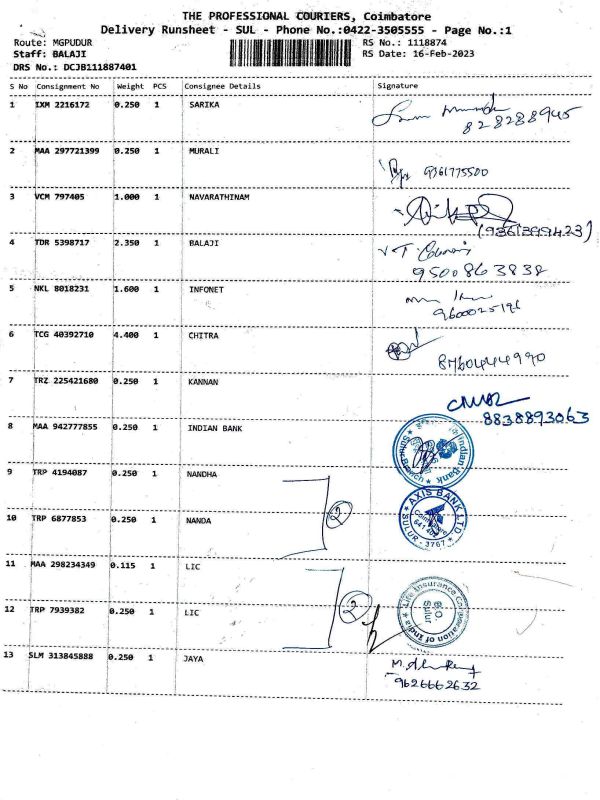 THE PROFESSIONAL COURIERS, Coimbatore
Delivery Runsheet - SUL - Phone No.:0422-3505555 - Page No.:1
Route: MGPUDUR RS No.: 1118874
Staff: BALAJI RS Date: 16-Feb-2023
DRS No.: DCJB111887401
S No Consignment No Weight PCS Consignee Details Signature
1 IXM 2216172 0.250 1 SARIKA
8282888945
2 MAA 297721399 0.250 1 MURALI
9361775500
3 VCM 797405 1.000 1 NAVARATHINAM
(9361399423)
4 TDR 5398717 2.350 1 BALAJI
9500863838
5 NKL 8018231 1.600 1 INFONET
9600025196
6 TCG 40392710 4.400 1 CHITRA
8760444990
7 TRZ 225421680 0.250 1 KANNAN
8838893063
8 MAA 942777855 0.250 1 INDIAN BANK
Indian Bank
Sulur Branch
9 TRP 4194087 0.250 1 NANDHA
2
AXIS BANK LTD
Coimbatore
641 402
SULUR - 3767
10 TRP 6877853 0.250 1 NANDA
11 MAA 298234349 0.115 1 LIC
2
Life Insurance Corporation of India
B.O.
Sulur
12 TRP 7939382 0.250 1 LIC
13 SLM 313845888 0.250 1 JAYA
9626662632